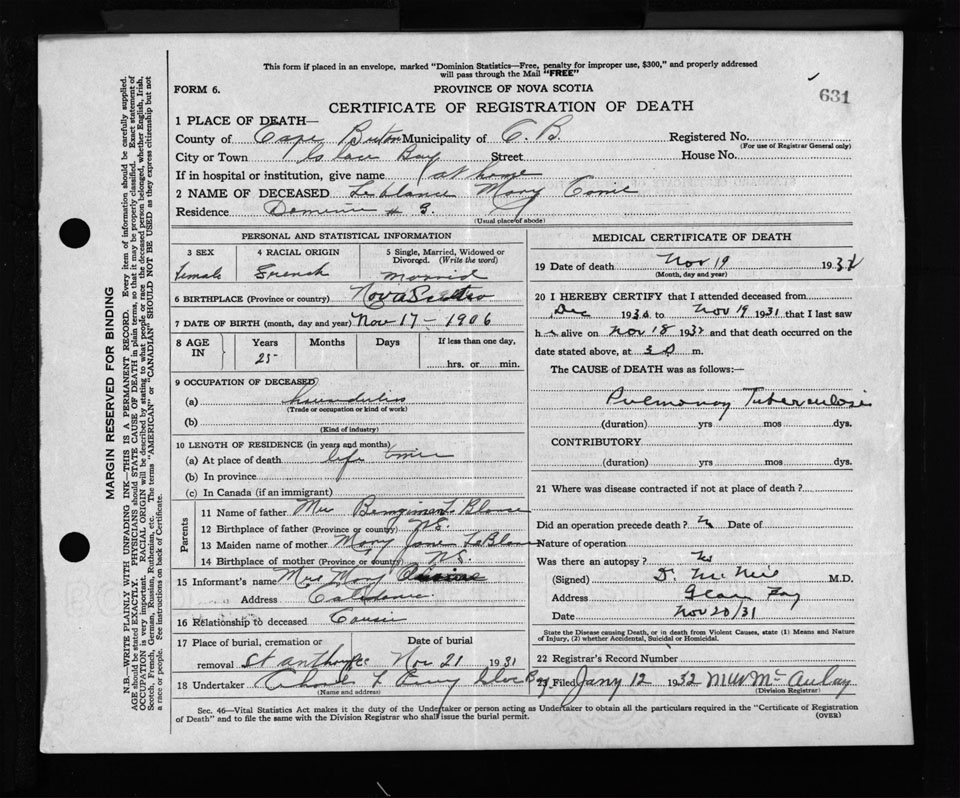 This form if placed in an envelope, marked "Dominion Statistics—Free, penalty for improper use, $300," and properly addressed
will pass through the Mail "FREE"
FORM 6.
PROVINCE OF NOVA SCOTIA
631
CERTIFICATE OF REGISTRATION OF DEATH
1 PLACE OF DEATH—
County of Cape Breton Municipality of C. B. Registered No.
(For use of Registrar General only)
City or Town Glace Bay Street House No.
If in hospital or institution, give name at home
2 NAME OF DECEASED Leblanc Mary
Residence # 9.
(Usual place of abode)
PERSONAL AND STATISTICAL INFORMATION
3 SEX 4 RACIAL ORIGIN 5 Single, Married, Widowed or
Divorced. (Write the word)
Female French Married
6 BIRTHPLACE (Province or country) Nova Scotia
7 DATE OF BIRTH (month, day and year) Nov 17 – 1906
8 AGE IN Years Months Days If less than one day,
25 hrs. or min.
9 OCCUPATION OF DECEASED
(a)
(Trade or occupation or kind of work)
(b)
(Kind of industry)
10 LENGTH OF RESIDENCE (in years and months)
(a) At place of death life time
(b) In province
(c) In Canada (if an immigrant)
Parents
11 Name of father
12 Birthplace of father (Province or country) N.S.
13 Maiden name of mother Mary Jane LeBlanc
14 Birthplace of mother (Province or country) N.S.
15 Informant's name Mrs Mary
Address
16 Relationship to deceased
17 Place of burial, cremation or Date of burial
removal St Nov 21 1931
18 Undertaker
(Name and address)
MEDICAL CERTIFICATE OF DEATH
19 Date of death Nov 19 193
(Month, day and year)
20 I HEREBY CERTIFY that I attended deceased from
Dec 1930 to Nov 19 1931 that I last saw
h alive on Nov 18 193 and that death occurred on
the date stated above, at m.
The CAUSE of DEATH was as follows:—
Pulmonary Tuberculosis
(duration) yrs mos dys.
CONTRIBUTORY
(duration) yrs mos. dys.
21 Where was disease contracted if not at place of death?
Did an operation precede death? Date of
Nature of operation
Was there an autopsy? No
(Signed) M.D.
Address Glace Bay
Date Nov 20/31
State the Disease causing Death, or in death from Violent Causes, state (1) Means and Nature
of Injury, (2) whether Accidental, Suicidal or Homicidal.
22 Registrar's Record Number
23. Filed Jany 12 1932 McAulay
(Division Registrar)
Sec. 46—Vital Statistics Act makes it the duty of the Undertaker or person acting as Undertaker to obtain all the particulars required in the "Certificate of Registration
of Death" and to file the same with the Division Registrar who shall issue the burial permit.
(OVER)
MARGIN RESERVED FOR BINDING
N.B.—WRITE PLAINLY WITH UNFADING INK—THIS IS A PERMANENT RECORD. Every item of information should be carefully supplied.
AGE should be stated EXACTLY. PHYSICIANS should STATE CAUSE OF DEATH in plain terms, so that it may be properly classified. Exact statement of
OCCUPATION is very important. RACIAL ORIGIN will be described by stating to what people or race the deceased person belonged, whether English, Irish,
Scotch, French, German, Russian, Ruthenian, etc. The terms "AMERICAN" or "CANADIAN" SHOULD NOT BE USED as they express citizenship but not
a race or people. See instructions on back of Certificate.